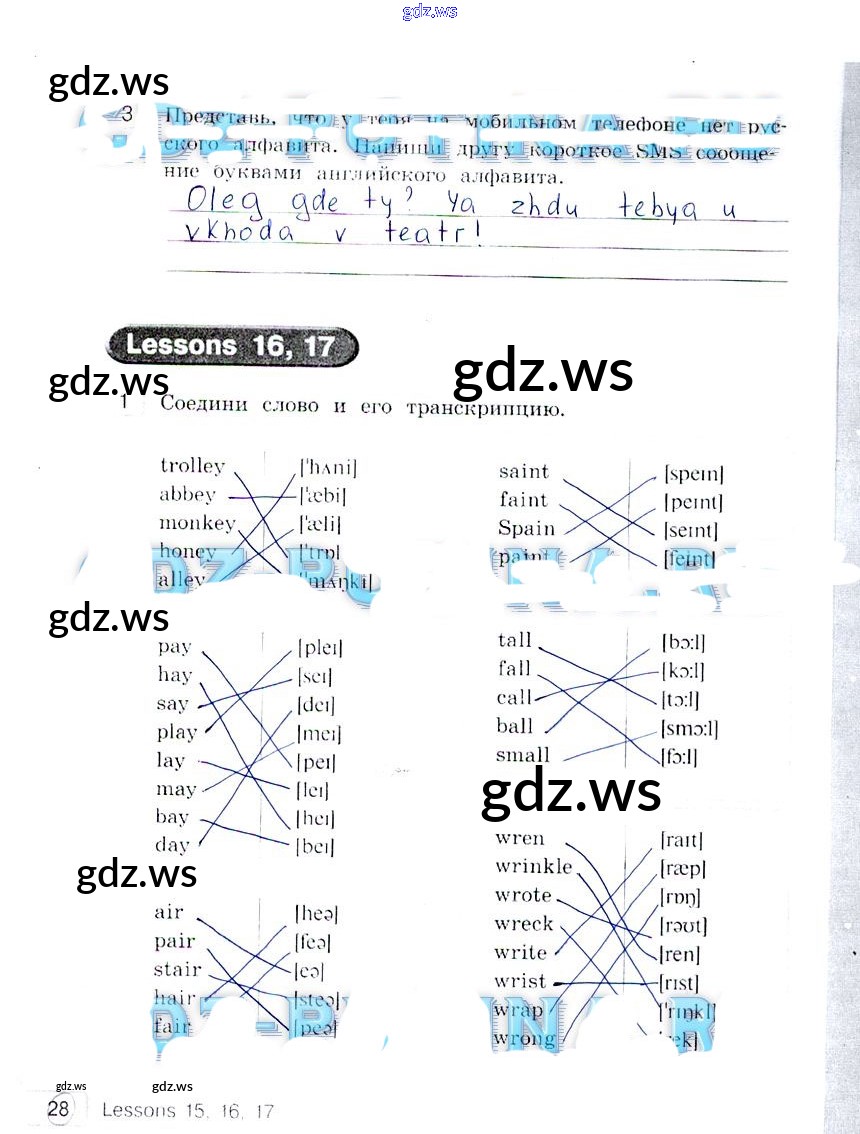 gdz.ws
gdz.ws
3 Представь, что у тебя на мобильном телефоне нет рус-
ского алфавита. Напиши другу короткое SMS сообще-
ние буквами английского алфавита.
Oleg gde ty? Ya zhdu tebya u
vkhoda v teatr!
Lessons 16, 17
gdz.ws
gdz.ws
1 Соедини слово и его транскрипцию.
trolley [ˈhʌni]
abbey [ˈæbi]
monkey [ˈæli]
honey
alley [ˈmʌŋki]
saint [speɪn]
faint [peɪnt]
Spain [seɪnt]
paint [feɪnt]
gdz.ws
pay [pleɪ]
hay [seɪ]
say [deɪ]
play [meɪ]
lay [peɪ]
may [leɪ]
bay [heɪ]
day [beɪ]
tall [bɔ:l]
fall [kɔ:l]
call [tɔ:l]
ball [smɔ:l]
small [fɔ:l]
gdz.ws
gdz.ws
air [heə]
pair [feə]
stair [eə]
hair [steə]
fair [peə]
wren [raɪt]
wrinkle [ræp]
wrote [rɒŋ]
wreck [rəʊt]
write [ren]
wrist [rɪst]
wrap [ˈrɪŋkl]
wrong
gdz.ws gdz.ws
28 Lessons 15, 16, 17